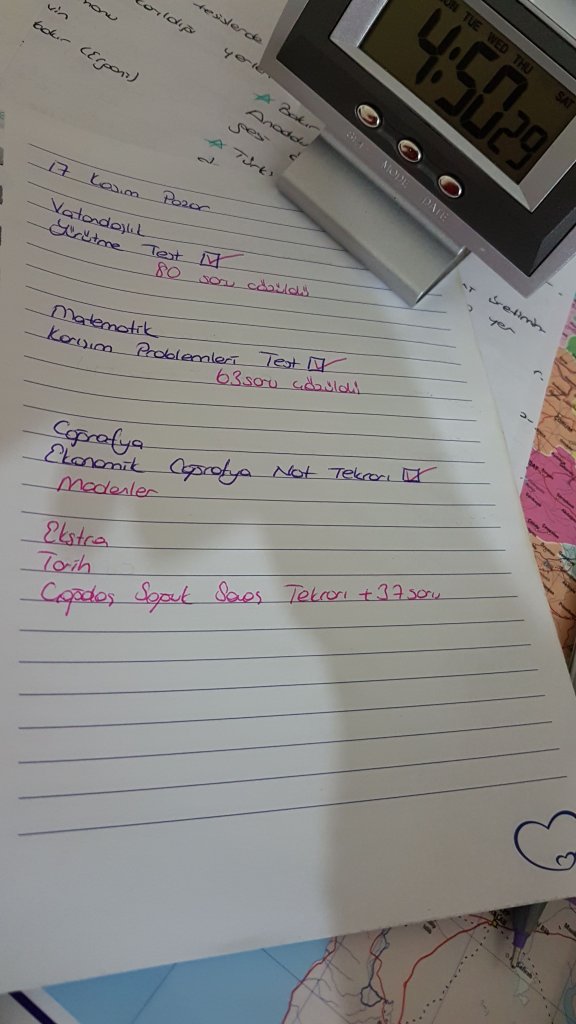 tesislerde
yerler
bakır (Ergani)
Bakır
Türki
SUN MON TUE WED THU SAT
4:50 29
SET MODE DATE
17 Kasım Pazar
Vatandaşlık
Yürütme Test ☑
80 soru çözüldü
Matematik
Karışım Problemleri Test ☑
63 soru çözüldü
Coğrafya
Ekonomik Coğrafya Not Tekrarı ☑
Madenler
Ekstra
Tarih
Çağdaş Soğuk Savaş Tekrarı + 37 soru
üretimin
yer